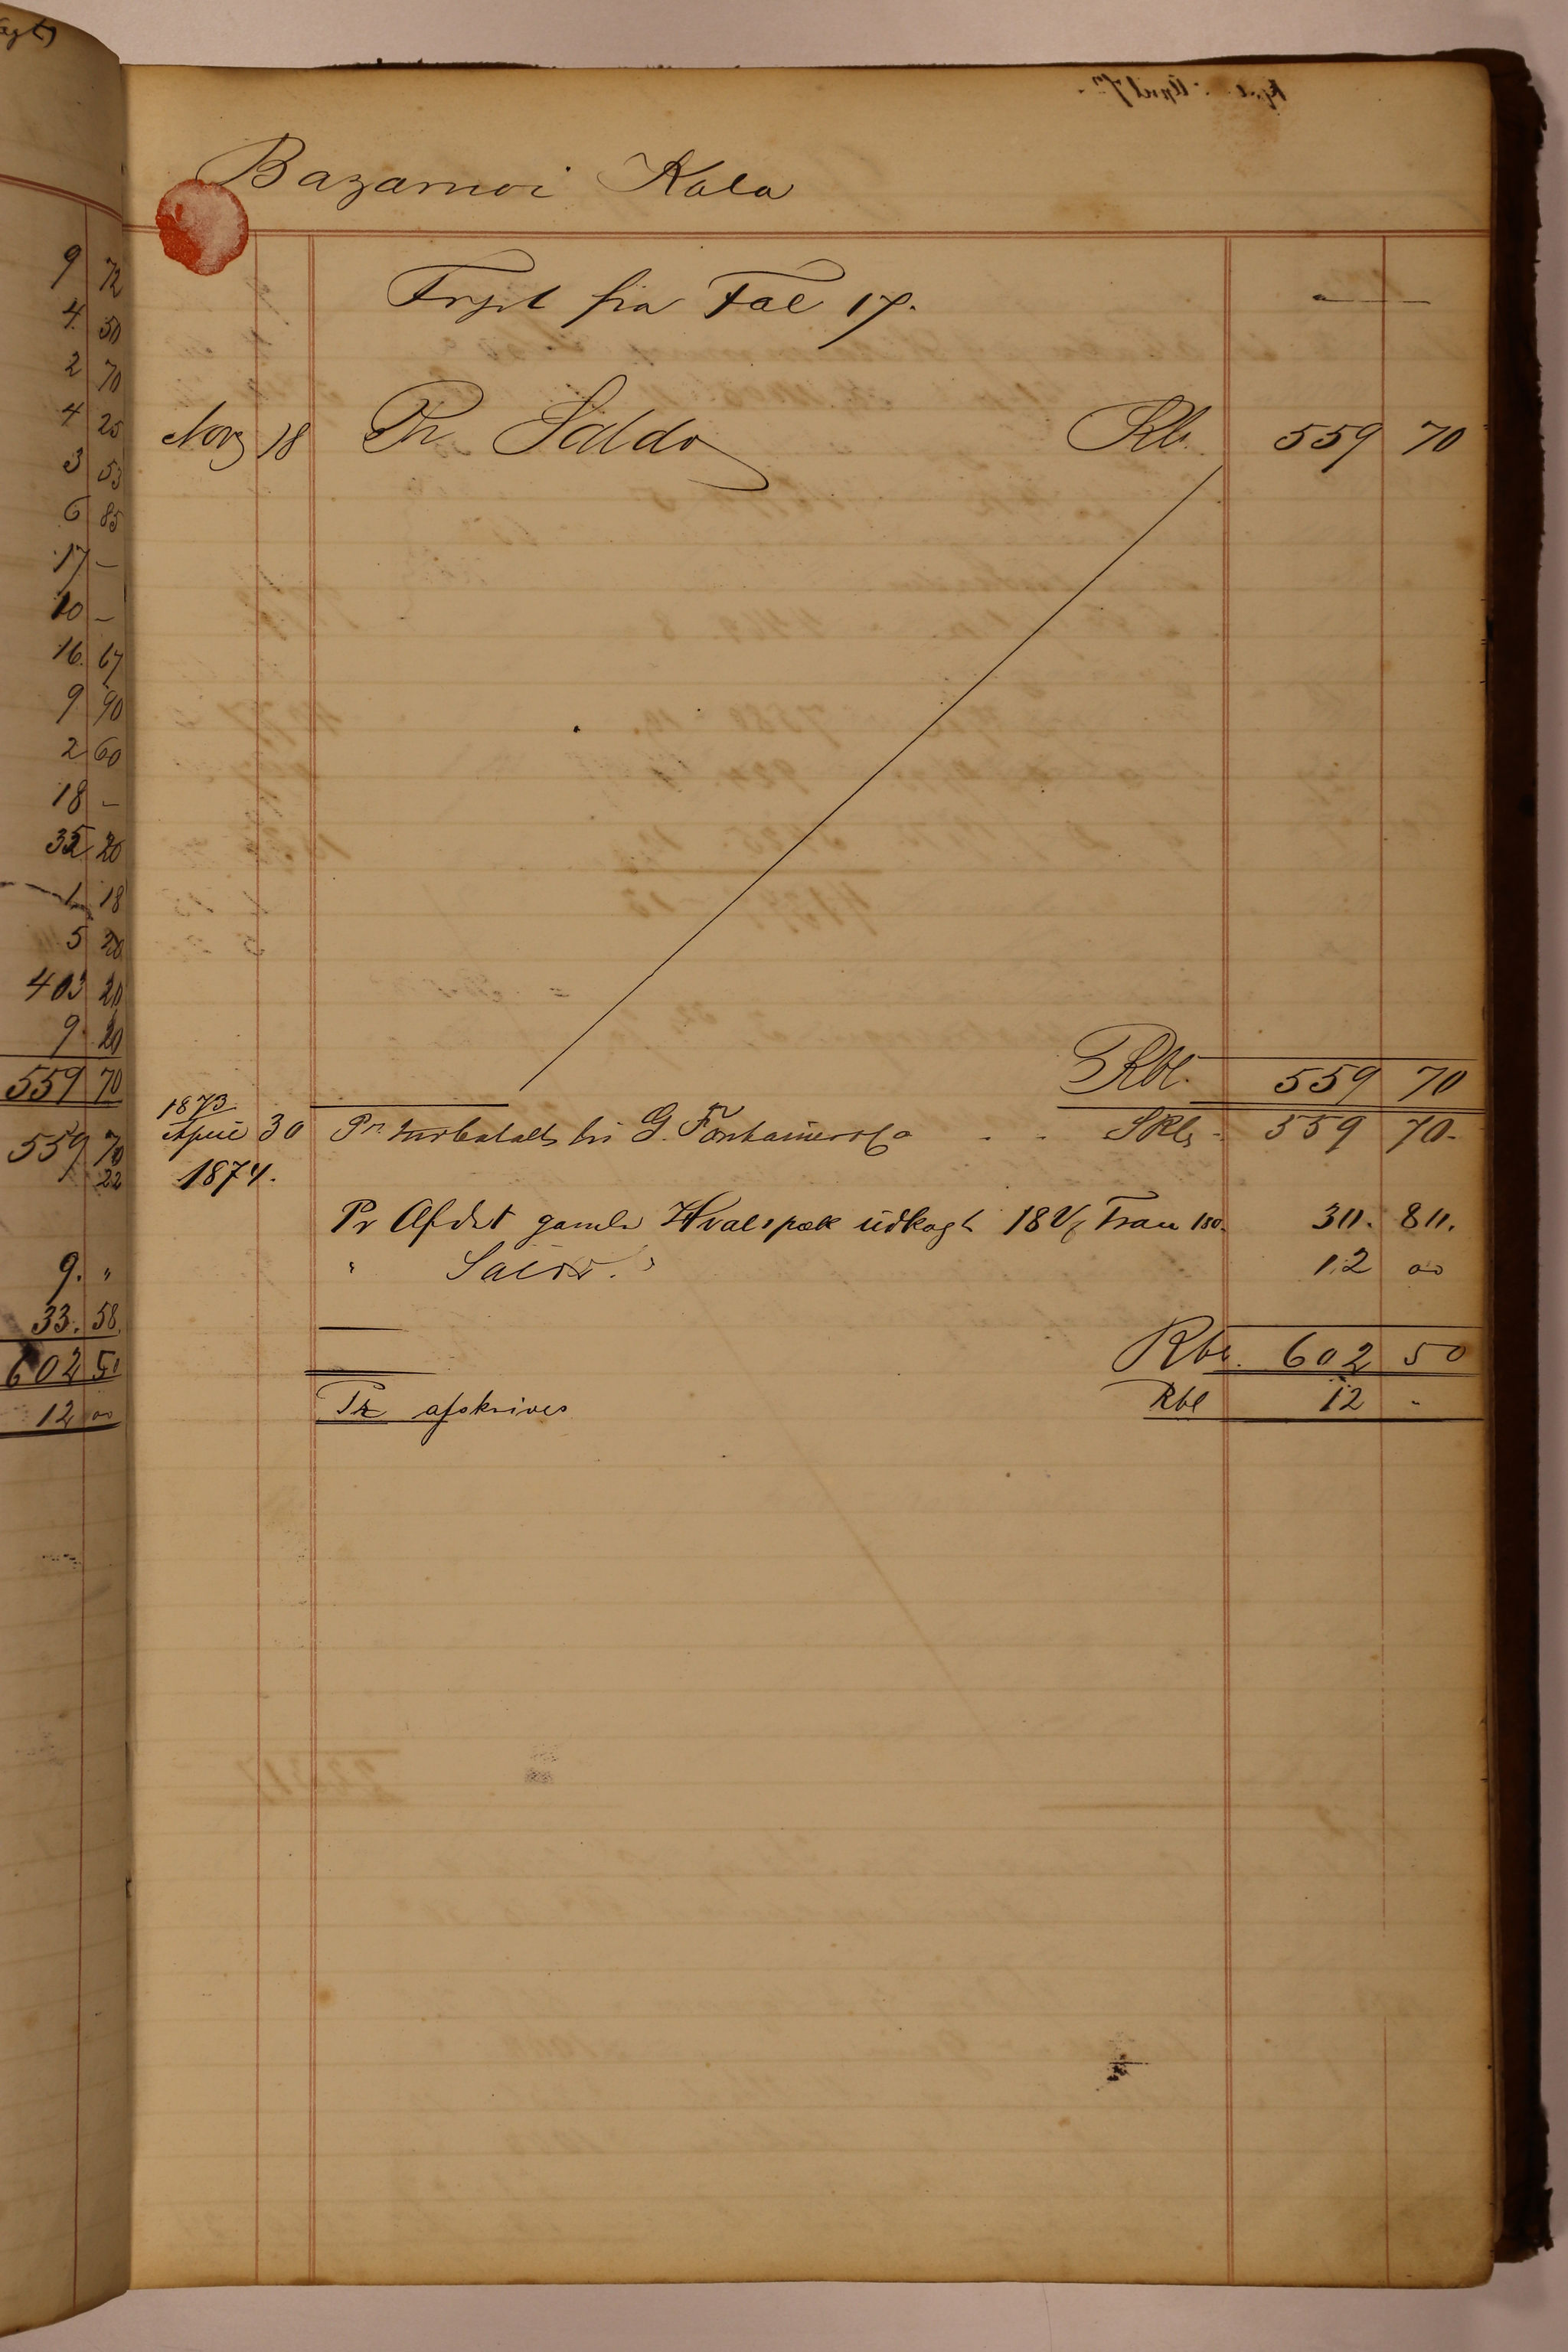 9 72
4 50
2 70
4 25
3 53
6 85
17 –
10 –
16 67
9 90
2 60
18 –
35 20
1 18
5 20
403 20
9 20
559 70
559 70
22
9. "
33. 58.
602 50
12 00
Bazarnoi Kala
Trspt fra Fol 17. —
Novb 18 Pr Saldo Rbl. 559 70
Rbl. 559 70
1873
April 30 Pr indbetalt hos G. SRbl. 559 70.
1874.
Pr Afdrt gamle Hvalspæk udkogt 18 Tran 30. 80.
" Saldo. " 12 00
Rbl. 602 50
Pr afskrives Rbl 12 -